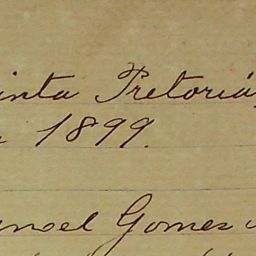 inta Pretoria,
1899.
noel Gomes